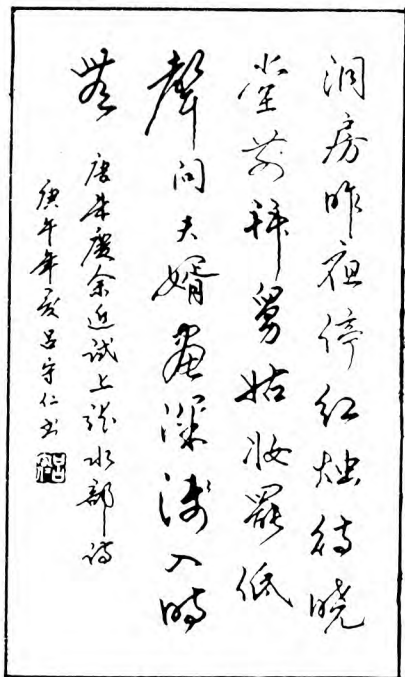 洞房昨夜停红烛待晓
堂前拜舅姑妆罢低
声问夫婿画深浅入时
无 唐朱庆余近试上张水部诗
庚午年夏吕守仁书